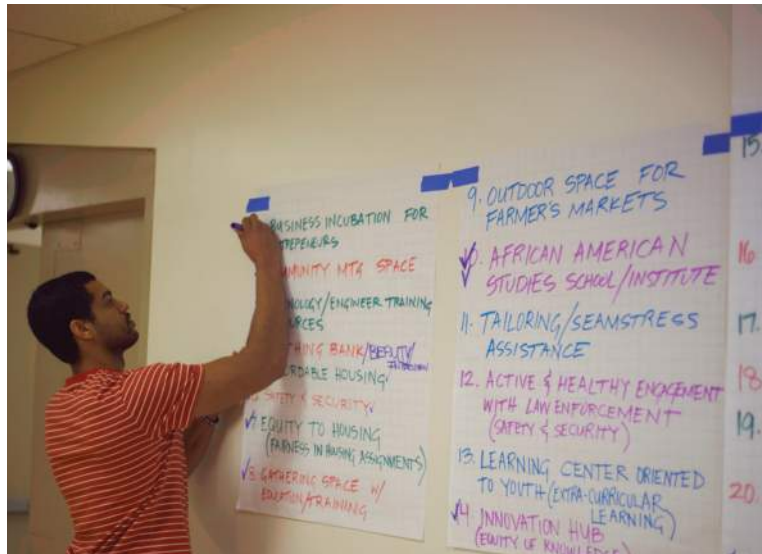 BUSINESS INCUBATION FOR
MTG SPACE
/ENGINEER TRAINING
BANK/BEAUTY/
HOUSING
SAFETY & SECURITY
7. EQUITY TO HOUSING
(FAIRNESS IN HOUSING ASSIGNMENTS)
8. GATHERING SPACE W/
EDUCATION/TRAINING
9. OUTDOOR SPACE FOR
FARMER'S MARKETS
10. AFRICAN AMERICAN
STUDIES SCHOOL/INSTITUTE
11. TAILORING/SEAMSTRESS
ASSISTANCE
12. ACTIVE & HEALTHY ENGAGEMENT
WITH LAW ENFORCEMENT
(SAFETY & SECURITY)
13. LEARNING CENTER ORIENTED
TO YOUTH (EXTRA-CURRICULAR
LEARNING)
14. INNOVATION HUB
(EQUITY OF KNOWLEDGE)
15.
16
17.
18
19.
20.